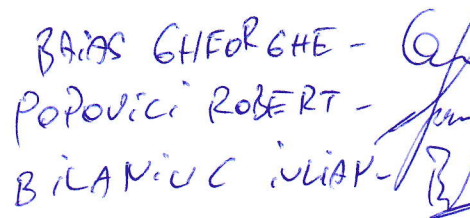 BAiAS GHEORGHE -
POPOViCi ROBERT -
BiLANiUC iULiAN -